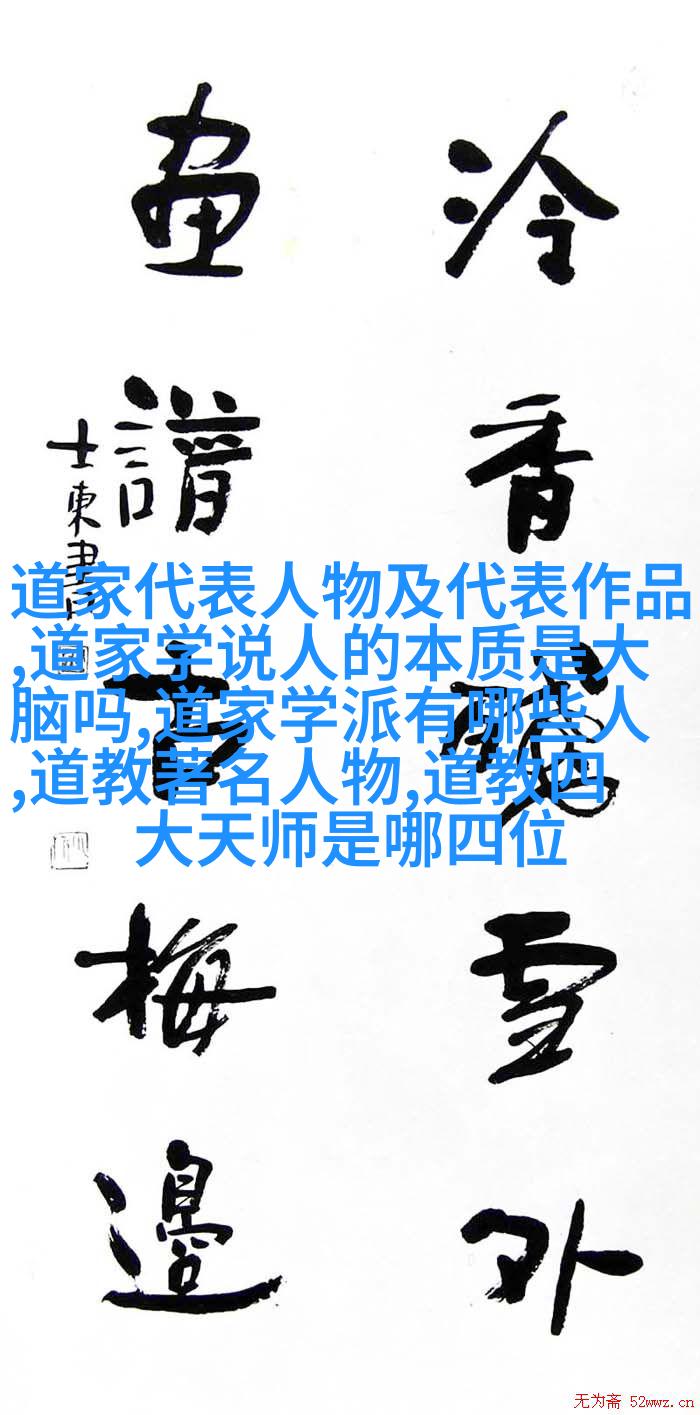 冷香雪外
畫譜古梅邊
士東書
道家代表人物及代表作品
,道家学说人的本质是大
脑吗,道家学派有哪些人
,道教著名人物,道教四
大天师是哪四位
无为斋 52wwz.cn